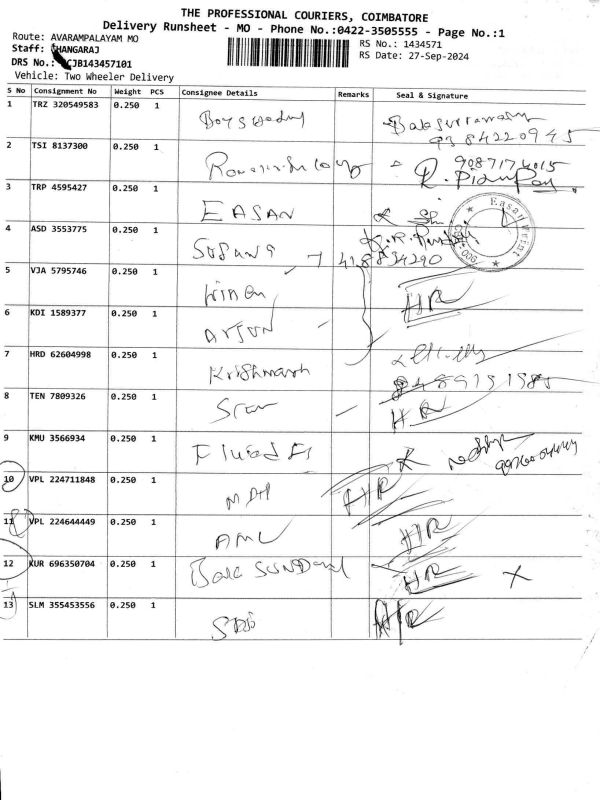 THE PROFESSIONAL COURIERS, COIMBATORE
Delivery Runsheet - MO - Phone No.:0422-3505555 - Page No.:1
Route: AVARAMPALAYAM MO
RS No.: 1434571
Staff: HANGARAJ
RS Date: 27-Sep-2024
DRS No.: CJB143457101
Vehicle: Two Wheeler Delivery
S No Consignment No Weight PCS Consignee Details Remarks Seal & Signature
1 TRZ 320549583 0.250 1
9384220945
2 TSI 8137300 0.250 1
9087174015
3 TRP 4595427 0.250 1 EASAN
Easan Print
4 ASD 3553775 0.250 1
5 VJA 5795746 0.250 1 HR
6 KDI 1589377 0.250 1 Arjun
7 HRD 62604998 0.250 1
8 TEN 7809326 0.250 1 HR
9 KMU 3566934 0.250 1
10 VPL 224711848 0.250 1 MDH HR
11 VPL 224644449 0.250 1 AML HR
12 KUR 696350704 0.250 1 HR X
13 SLM 355453556 0.250 1 HR